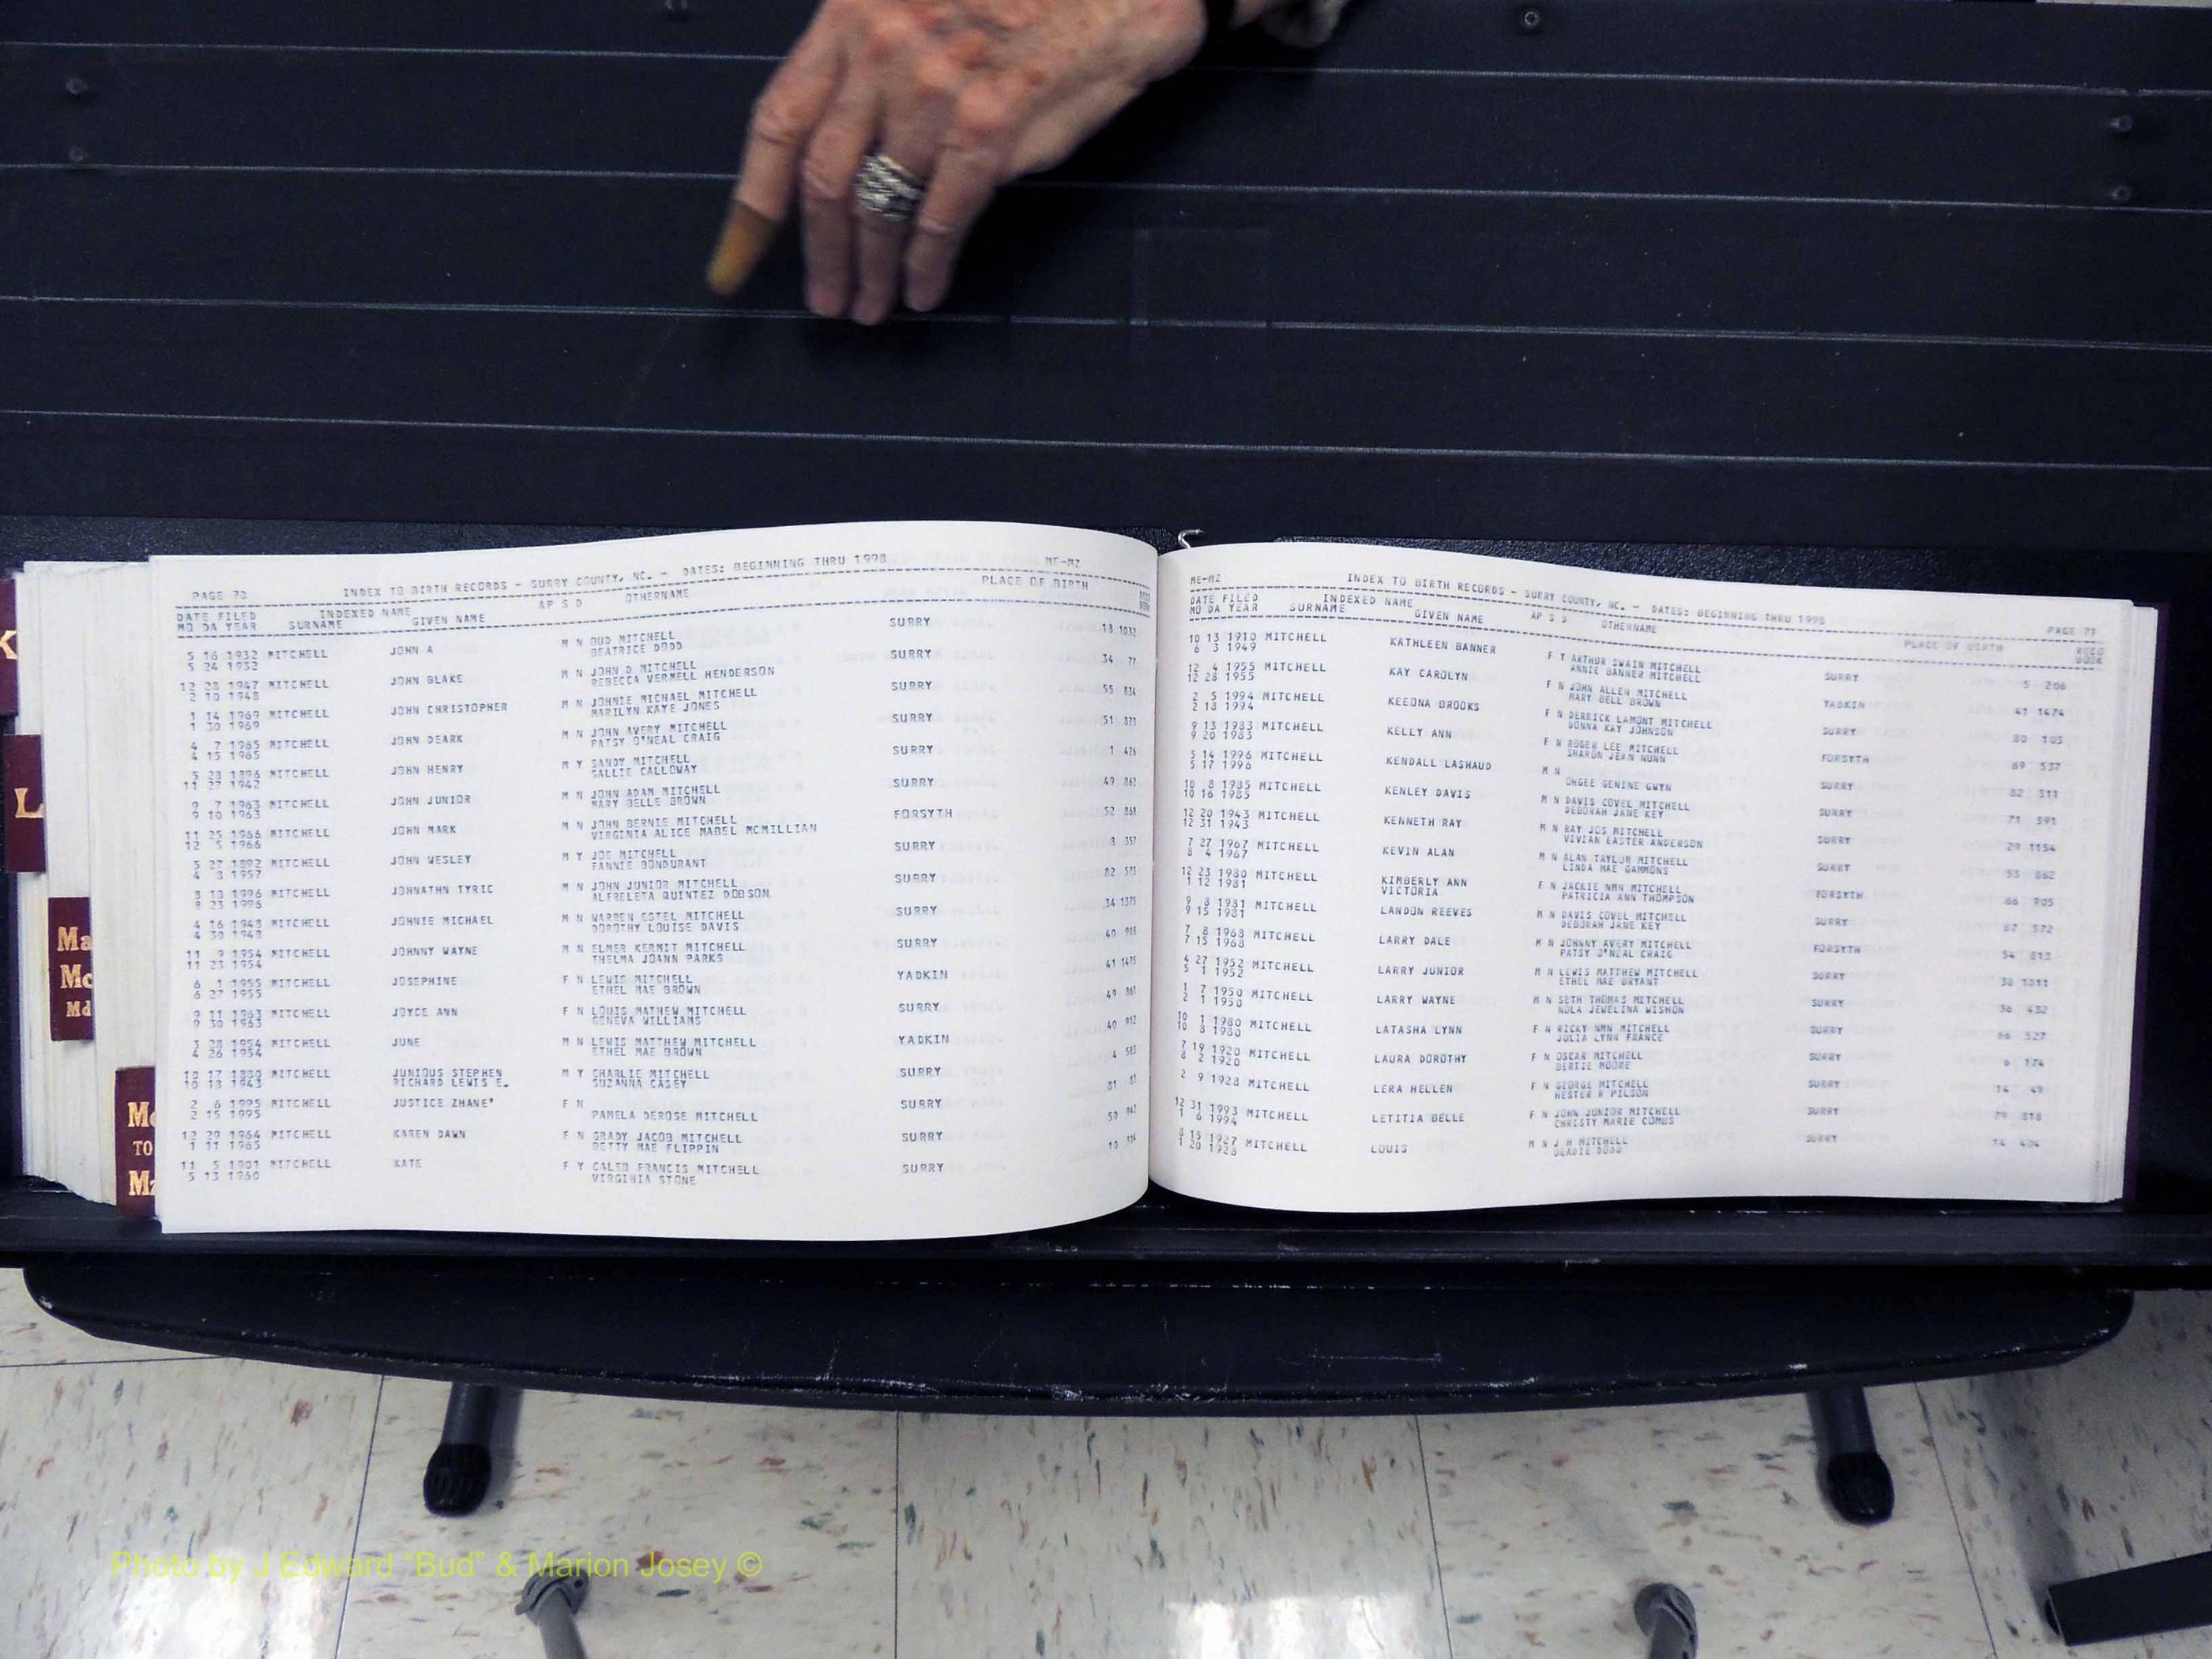 PAGE 70 INDEX TO BIRTH RECORDS - SURRY COUNTY, NC. - DATES: BEGINNING THRU 1998 ME-MZ
DATE FILED INDEXED NAME AP S D OTHERNAME PLACE OF BIRTH
MO DA YEAR SURNAME GIVEN NAME
5 16 1932 MITCHELL JOHN A M N BUD MITCHELL SURRY 18 1032
5 24 1932 BEATRICE DODD
12 28 1947 MITCHELL JOHN BLAKE M N JOHN D MITCHELL SURRY 34 71
2 10 1948 REBECCA VERMELL HENDERSON
1 14 1969 MITCHELL JOHN CHRISTOPHER M N JOHNIE MICHAEL MITCHELL SURRY 55 834
1 30 1969 MARILYN KAYE JONES
4 7 1965 MITCHELL JOHN DEARK M N JOHN AVERY MITCHELL SURRY 51
4 15 1965 PATSY O'NEAL CRAIG
5 28 1896 MITCHELL JOHN HENRY M Y SANDY MITCHELL SURRY 1 426
11 27 1942 SALLIE CALLOWAY
9 7 1963 MITCHELL JOHN JUNIOR M N JOHN ADAM MITCHELL SURRY 49 862
9 10 1963 MARY BELLE BROWN
11 25 1966 MITCHELL JOHN MARK M N JOHN BERNIE MITCHELL FORSYTH 52 868
12 5 1966 VIRGINIA ALICE MABEL MCMILLIAN
5 27 1892 MITCHELL JOHN WESLEY M Y JOE MITCHELL SURRY 8 357
4 8 1957 FANNIE BONDURANT
8 18 1996 MITCHELL JOHNATHN TYRIC M N JOHN JUNIOR MITCHELL SURRY 82 573
8 23 1996 ALFRELETA QUINTEZ DOBSON
4 16 1948 MITCHELL JOHNIE MICHAEL M N WARREN ESTEL MITCHELL SURRY 34 1375
4 30 1948 DOROTHY LOUISE DAVIS
11 9 1954 MITCHELL JOHNNY WAYNE M N ELMER KERMIT MITCHELL SURRY 40 908
11 23 1954 THELMA JOANN PARKS
6 1 1955 MITCHELL JOSEPHINE F N LEWIS MITCHELL YADKIN 41 1475
6 27 1955 ETHEL MAE BROWN
9 11 1963 MITCHELL JOYCE ANN F N LOUIS MATHEW MITCHELL SURRY 49 861
9 30 1963 GENEVA WILLIAMS
3 28 1954 MITCHELL JUNE M N LEWIS MATTHEW MITCHELL YADKIN 40 912
4 26 1954 ETHEL MAE BROWN
10 17 1880 MITCHELL JUNIOUS STEPHEN M Y CHARLIE MITCHELL SURRY 4 585
10 18 1943 RICHARD LEWIS E. SUZANNA CASEY
2 6 1995 MITCHELL JUSTICE ZHANE' F N SURRY 81
2 15 1995 PAMELA DEROSE MITCHELL
12 29 1964 MITCHELL KAREN DAWN F N GRADY JACOB MITCHELL SURRY 50 962
1 11 1965 BETTY MAE FLIPPIN
11 5 1901 MITCHELL KATE F Y CALEB FRANCIS MITCHELL SURRY 10
5 13 1960 VIRGINIA STONE
ME-MZ INDEX TO BIRTH RECORDS - SURRY COUNTY, NC. - DATES: BEGINNING THRU 1998 PAGE 71
DATE FILED INDEXED NAME AP S D OTHERNAME PLACE OF BIRTH RECD
MO DA YEAR SURNAME GIVEN NAME BOOK
10 13 1910 MITCHELL KATHLEEN BANNER F Y ARTHUR SWAIN MITCHELL SURRY 5 206
6 3 1949 ANNIE BANNER MITCHELL
12 4 1955 MITCHELL KAY CAROLYN F N JOHN ALLEN MITCHELL YADKIN 41 1474
12 28 1955 MARY BELL BROWN
2 5 1994 MITCHELL KEEONA BROOKS F N DERRICK LAMONT MITCHELL SURRY 80 103
2 18 1994 DONNA KAY JOHNSON
9 13 1983 MITCHELL KELLY ANN F N ROGER LEE MITCHELL FORSYTH 69 537
9 20 1983 SHARON JEAN NUNN
5 14 1996 MITCHELL KENDALL LASHAUD M N SURRY 82 311
5 17 1996 GENINE GWYN
10 8 1985 MITCHELL KENLEY DAVIS M N DAVIS COVEL MITCHELL SURRY 71 591
10 16 1985 DEBORAH JANE KEY
12 20 1943 MITCHELL KENNETH RAY M N RAY JOS MITCHELL SURRY 29 1154
12 31 1943 VIVIAN EASTER ANDERSON
7 27 1967 MITCHELL KEVIN ALAN M N ALAN TAYLOR MITCHELL SURRY 53 862
8 4 1967 LINDA MAE GAMMONS
12 23 1980 MITCHELL KIMBERLY ANN F N JACKIE NMN MITCHELL FORSYTH 66 905
1 12 1981 VICTORIA PATRICIA ANN THOMPSON
9 8 1981 MITCHELL LANDON REEVES M N DAVIS COVEL MITCHELL SURRY 67 572
9 15 1981 DEBORAH JANE KEY
7 8 1968 MITCHELL LARRY DALE M N JOHNNY AVERY MITCHELL FORSYTH 54 813
7 15 1968 PATSY O'NEAL CRAIG
4 27 1952 MITCHELL LARRY JUNIOR M N LEWIS MATTHEW MITCHELL SURRY 38 1011
5 1 1952 ETHEL MAE BRYANT
1 7 1950 MITCHELL LARRY WAYNE M N SETH THOMAS MITCHELL SURRY 36 432
2 1 1950 NOLA JEWELINA WISHON
10 1 1980 MITCHELL LATASHA LYNN F N RICKY NMN MITCHELL SURRY 66 527
10 8 1980 JULIA LYNN FRANCE
7 19 1920 MITCHELL LAURA DOROTHY F N OSCAR MITCHELL SURRY 6 174
8 2 1920 BERTIE MOORE
2 9 1928 MITCHELL LERA HELLEN F N GEORGE MITCHELL SURRY 14 49
HESTER R PILSON
12 31 1993 MITCHELL LETITIA BELLE F N JOHN JUNIOR MITCHELL SURRY 79 818
1 6 1994 CHRISTY MARIE COMBS
8 15 1927 MITCHELL LOUIS M N J H MITCHELL SURRY 14 404
1 20 1928 BEADIE DODD
K
L
Ma
Mc
Md
Me
TO
Mz
Photo by J Edward "Bud" & Marion Josey ©